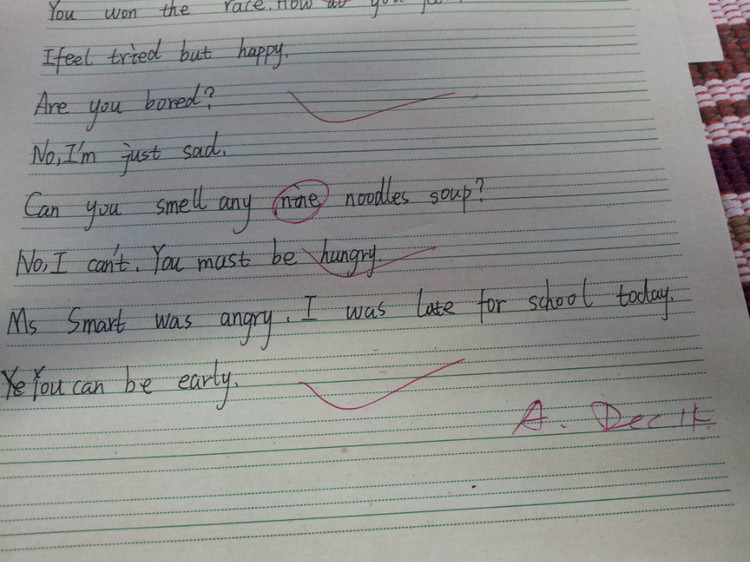 You won the race. How do you
I feel tried but happy.
Are you bored?
No, I'm just sad.
Can you smell any nine noodles soup?
No, I can't. You must be hungry.
Ms Smart was angry. I was late for school today.
Ye You can be early.
A. Dec 1st